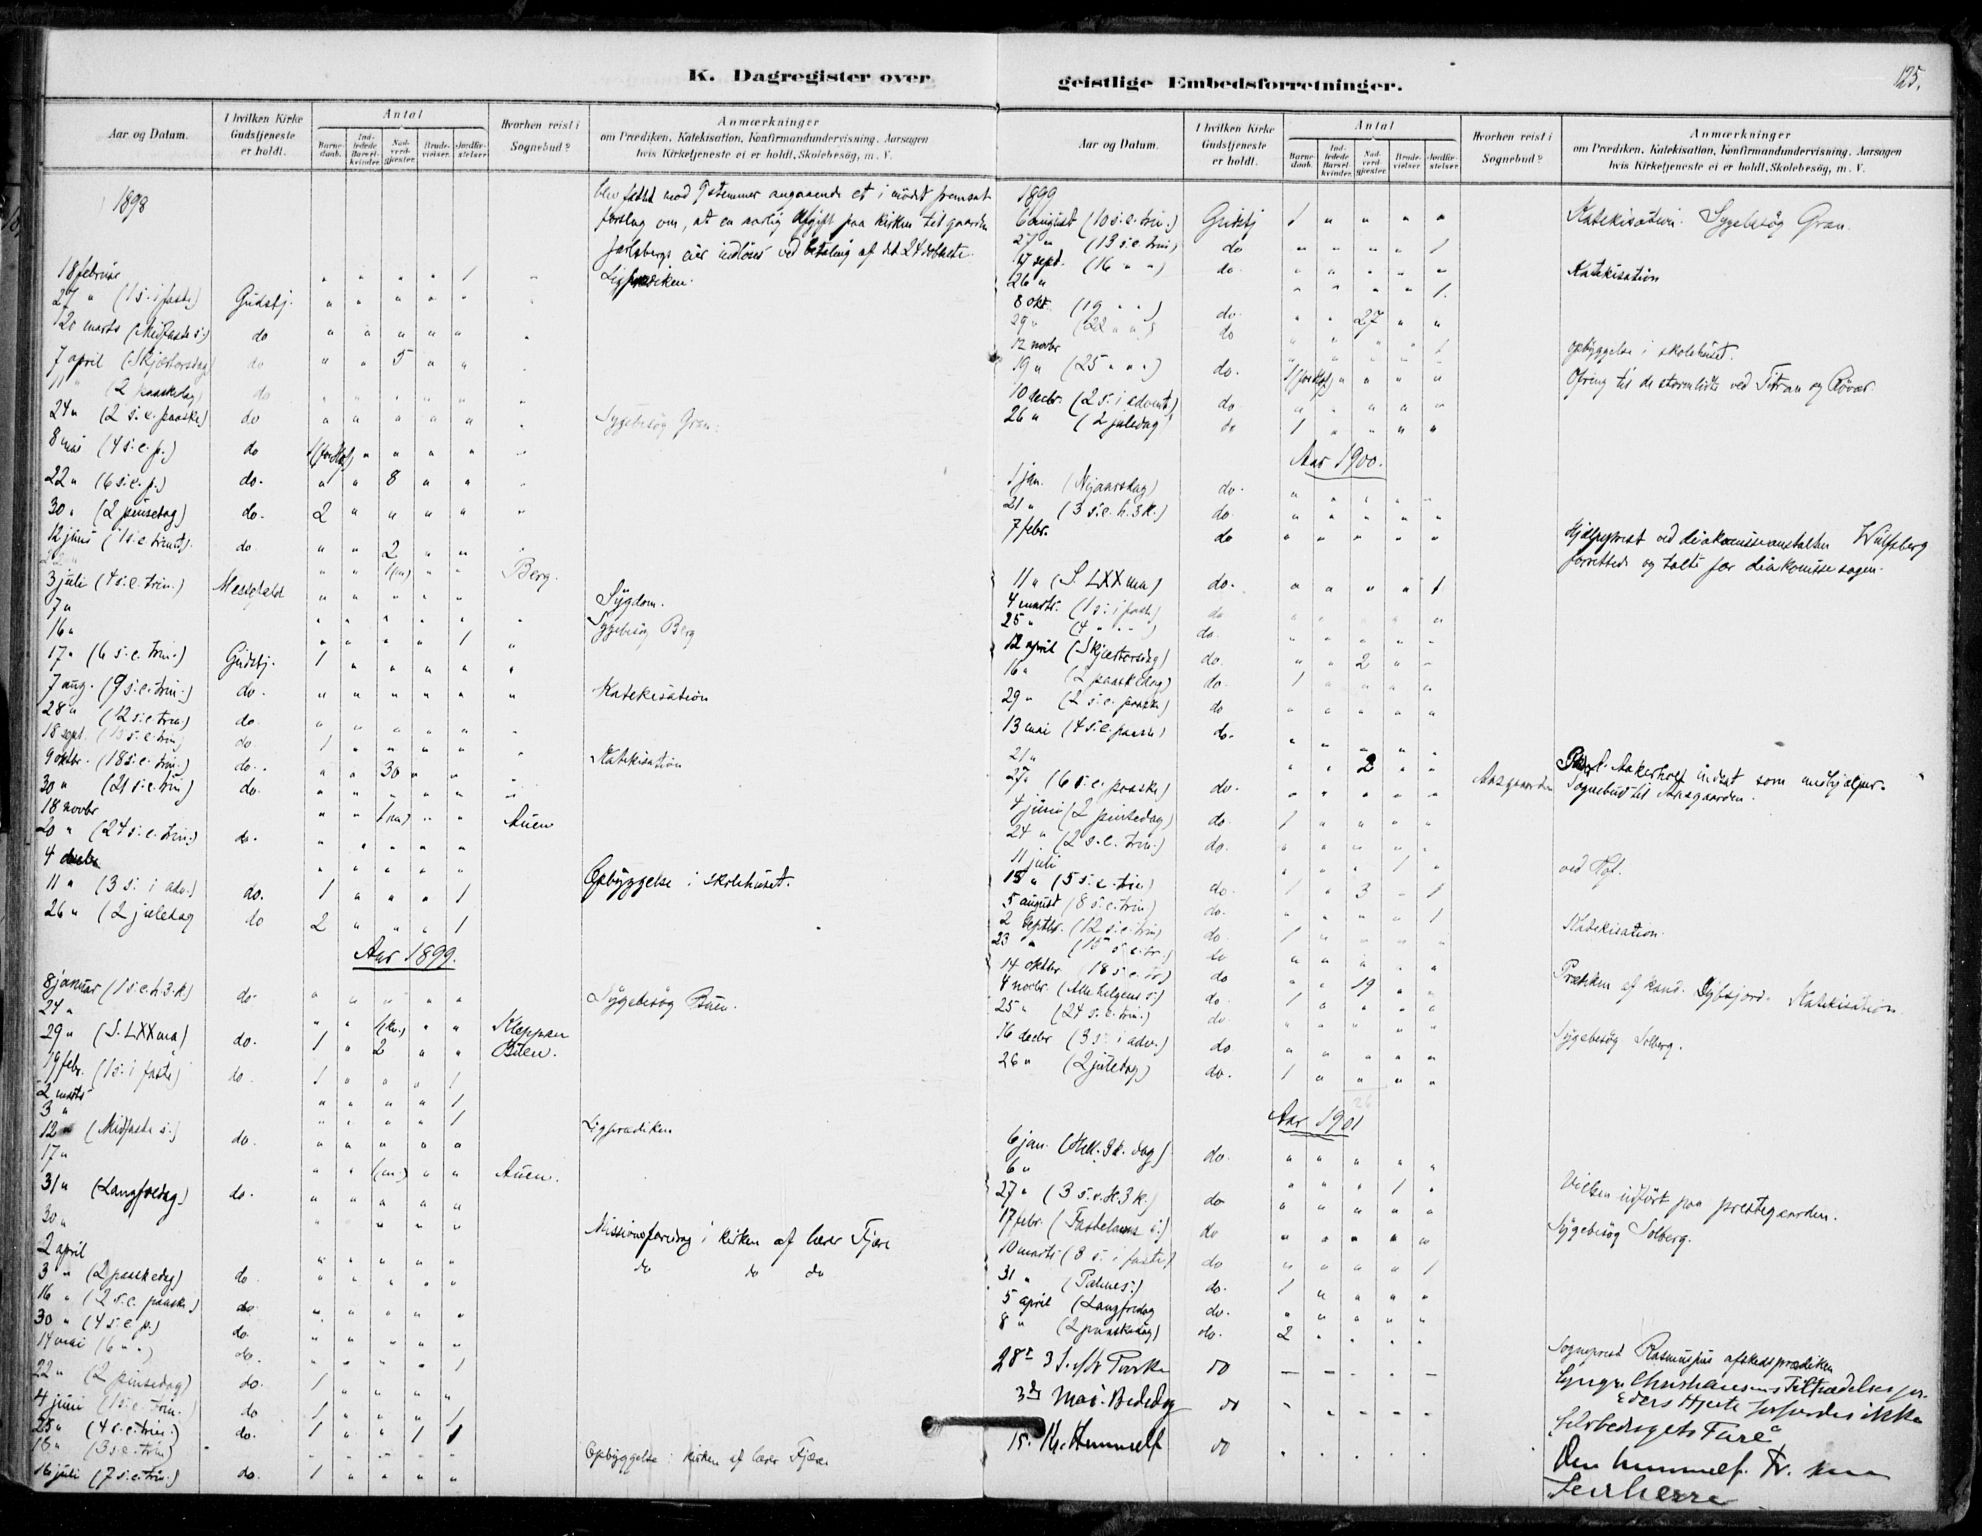 K. Dagregister over
Aar og Datum.
I hvilken Kirke Gudstjeneste er holdt.
Antal
Barnedaab.
Indledede Barselkvinder.
Nadverdgjester.
Brudevielser.
Jordfæstelser.
Hvorhen reist i Sognebud?
Anmærkninger
om Prædiken, Katekisation, Konfirmandundervisning, Aarsagen
hvis Kirketjeneste ei er holdt, Skolebesøg, m. V.
1898
blev fattet med 9 stemmer angaaende et i mødet fremsat
forslag om, at en aarlig afgift paa kirken til gaarden
Jarlsberg blir indløst ved betaling af det 24 dobbelte.
18 februar " " " " 1 " Ligprædiken.
27 " (1 s. i faste) Gudstj. " " " " " "
20 marts (Midfaste s.) do " " " " " "
7 april (Skjærtorsdag) do " " 5 " " "
11 " (2 paaskedag) do " " " " " "
24 " (2 s. e. paaske) do " " " " " " Sygebesøg Gran.
8 mai (4 s. e. p.) do 1 " " " " "
22 " (6 s. e. p.) do. " " 8 " " "
30 " (2 pinsedag) do. 2 " " " " "
12 juni (1 s. e. trinit.) do " " 2 " " "
" " 1(m) " " Berg.
3 juli (4 s. e. trin.) Messefald " " " " " Sygdom.
7 " " " " " " " Sygebesøg Berg
16 " " " " " 1 "
17 " (6 s. e. trin.) Gudstj. 1 " " " " "
7 aug. (9 s. e. trin.) do. " " " " " " Katekisation
28 " (12 s. e. trin.) do " " " " " "
18 sept. (15 s. e. trin) do. 1 " " " " "
9 oktbr. (18 s. e. trin.) do. " " 30 " " " Katekisation
30 " (21 s. e. trin) do. " " " " " "
18 novbr " " 1(m) " " Auen
20 " (24 s. e. trin.) do. " " " " "
4 decbr " " " " " Opbyggelse i skolehuset.
11 " (3 s. i adv.) do. 1 " " " 1
26 " (2 juledag do 2 " " " 1
Aar 1899.
8 januar (1 s. e. h. 3. k.) do. " " " " " Sygebesøg Buen.
24 " " " " " Kleppan
29 " (S. LXXma) do. 1 " 2 " " Buen.
19 febr. (1 s. i faste) do. 1 " " " 1
2 marts " " " " 1
3 " " " " " 1 Ligprædiken
12 " (Midfaste s.) do. " " " " "
17 " " " 1(m.) " " Auen.
31 " (Langfredag) do. " " " " "
30 " " " " " " Missionsforedrag i kirken af lærer Fjære
2 april " " " " " do do do
3 " (2 paaskedag) do " " " " "
16 " (2 s. e. paaske) do. " " " " "
30 " (4 s. e. p.) do. " " " " "
14 mai (6 " " ) do. " " " " 1
22 " (2 pinsedag) do. 1 " " " "
4 juni (1 s. e. trin. do 1 " " " 1
25 " (4 s. e. trin.) do. 1 " " 1 1
18 " (3 s. e. trin) " " " " " Opbyggelse i kirken af lærer Fjære
16 juli (7 s. e. trin.) do. 1 " " " "
geistlige Embedsforretninger.
125.
Aar og Datum.
I hvilken Kirke Gudstjeneste er holdt.
Antal
Barnedaab.
Indledede Barselkvinder.
Nadverdgjester.
Brudevielser.
Jordfæstelser.
Hvorhen reist i Sognebud?
Anmærkninger
om Prædiken, Katekisation, Konfirmandundervisning, Aarsagen
hvis Kirketjeneste ei er holdt, Skolebesøg, m. V.
1899
6 august (10 s. e. trin.) Gudstj 1 " " " " Katekisation. Sygebesøg Gran.
27 " (13 s. e. trin) do " " " " 1
17 sept. (16 " " ) do. " " " " " Katekisation
26 " " " " " 1.
8 okt. (19 " " ) do. " " 27 " "
29 " (22 " " ) do " " " " "
12 novbr " " " " 1 opbyggelse i skolehuset.
19 " (25 " " ) do. 1 " " " " Ofring til de stormlidte ved Titran og Røvær.
10 decbr. (2 s. i advent) do " " " " "
26 " (2 juledag) do 1 " " " "
Aar 1900.
1 jan. (Nyaarsdag) do. " " " " "
21 " (3 s. e. h. 3 k.) do. " " " " "
7 febr. do " " " " " Hjælpeprest ved diakonisseanstalten Wulfsberg
forrettede og talte for diakonissesagen.
11 " (S. LXXma) do. " " " " 1
4 marts (1 s. i faste) do " " " " "
25 " (4 " " " ) do. " " " " "
12 april (Skjærtorsdag) do. " " 2 " "
16 " (2 paaskedag) do. 1 " " " "
29 " (2 s. e. paaske) do " " " " "
13 mai (4 s. e. paaske) do. " " " " "
21 " " " 2 " " Aasgaarden Aakerholt indsat som medhjælper.
27 " (6 s. e. paaske) do. " " " " " Sognebud til Aasgaarden.
4 juni (2 pinsedag) do 1 " " " "
24 " (2 s. e. trin.) do. " " " " "
11 juli " " " 1 " ved Hgf.
15 " (5 s. e. trin) do. 1 " 3 " 1
5 august (8 s. e. trin) do. " " " " 1
2 septbr. (12 s. e. trin) do 1 " " " " Katekisation.
23 " (15 s. e. tr.) do " " " " "
14 oktbr. (18 s. e. tr) do " " 19 " " Prædiken af kand. Dybfjord. Katekisation.
4 novbr. (Allehelgens s.) do. 1 " " " "
25 " (24 s. e. trin.) do. " " " " " Sygebesøg Solberg.
16 decbr (3 s. i adv.) do " " " " "
26 " (2 juledag) do. 1 " " " "
26
Aar 1901
6 jan. (Hell. 3 k. dag) do. " " " " "
6 " " " " 1 " Vielsen udført paa prestegaarden.
27 " (3 s. e. H. 3 k.) do " " " " "
17 febr. (Fastelavns s.) do " " " " " Sygebesøg Solberg.
10 marts (3 s. i faste) do " " " " 1
31 " (Palmes.) do. 1 " " " "
5 april (Langfredag do. " " " " "
8 " (2 paaskedag) do. 2 " " " "
28de 3 S. e/r Paaske do — — — — — Sogneprest Rasmussens afskedsprædiken
3die Mai. Bededag do " " " " " Christiansens Tiltrædelses pr.
Eders Hjerte forfærdes ikke
15. Kr. Himmelf do " " " " " Selvbedragets Fare"
Den himmelf. Fr. som
Seirherre